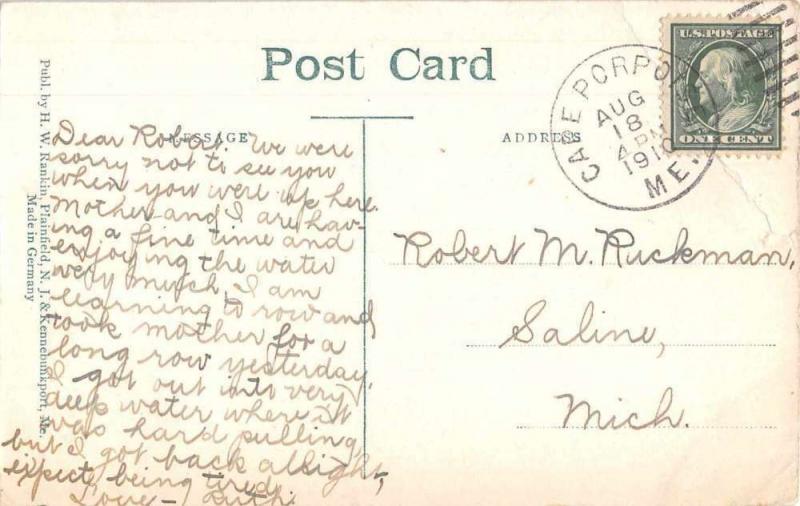 Post Card
MESSAGE
ADDRESS
Publ. by H. W. Rankin, Plainfield, N. J. & Kennebunkport, Me.
Made in Germany
U.S. POSTAGE
ONE CENT
CAPE PORPO
AUG
18
4 PM
1910
ME.
Dear Robert. We were
sorry not to see you
when you were up here.
Mother and I are hav-
ing a fine time and
enjoying the water
very much. I am
learning to row and
took mother for a
long row yesterday.
I got out into very
deep water where it
was hard pulling,
but I got back allright,
expect, being tired.
Love - Ruth.
Robert M. Ruckman,
Saline,
Mich.